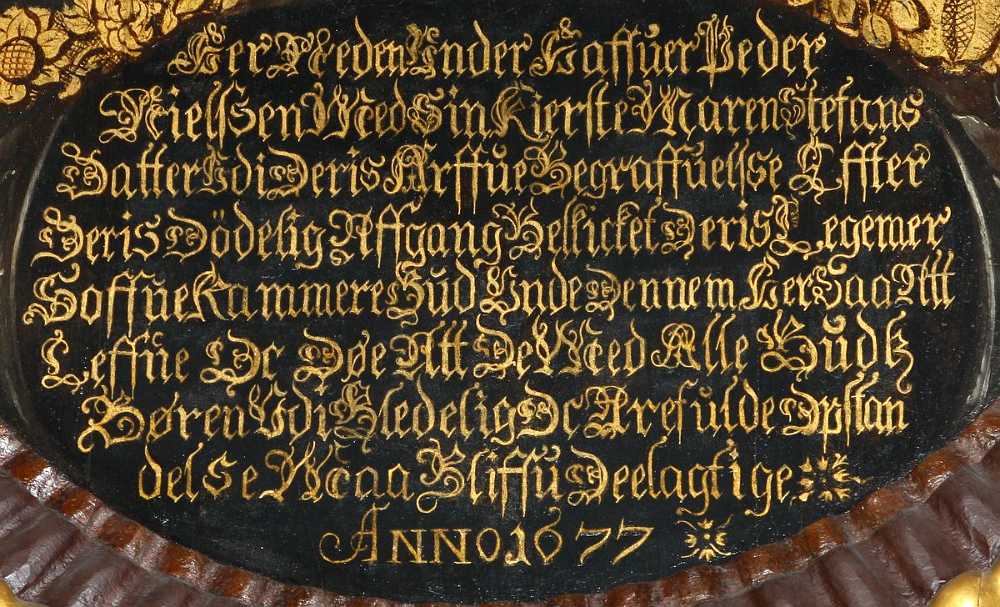 Her Neden Under Haffuer Peder
Nielssen Med Sin Kierste Maren Stefans
Datter Udi Deris Arffue Begraffuelsse Effter
Deris Dödelig Affgang Beskicket Deris Legemer
Soffue Kammere Gud Unde Dennem Her Saa Att
Leffue Oc Døe Att De Med Alle Gudz
Børen Udi Gledelig Oc Arefulde Opstan
delse Maa Bliffu Deelagtige
ANNO 1677